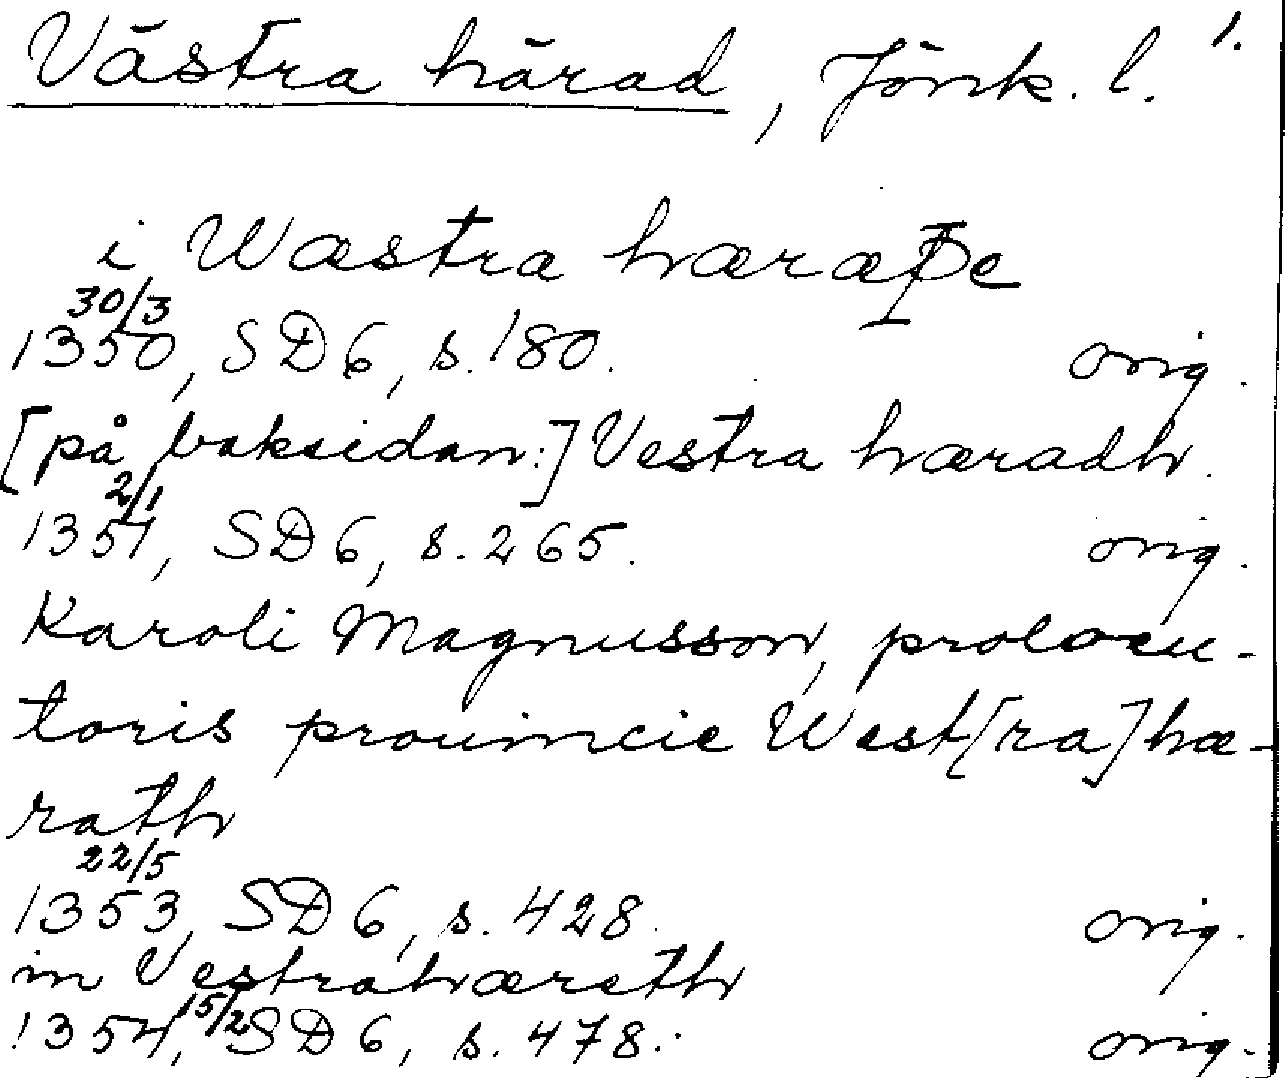 Västra härad, Jönk. l. 1.
i Wæstra hæræþe
30/3
1350, SD 6, s. 180. orig.
[på baksidan:] Vestra hæradh.
2/1
1351, SD 6, s. 265. orig.
Karoli Magnusson, prolocu-
toris prouincie West[ra]hæ-
rath
22/5
1353, SD 6, s. 428. orig.
in Vestrahæreth
1354, 15/2 SD 6, s. 478. orig.